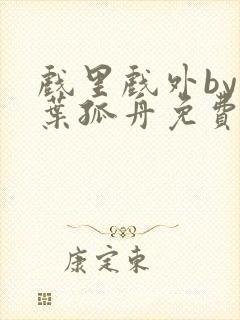 戲里戲外by
葉孤舟免費
康定東